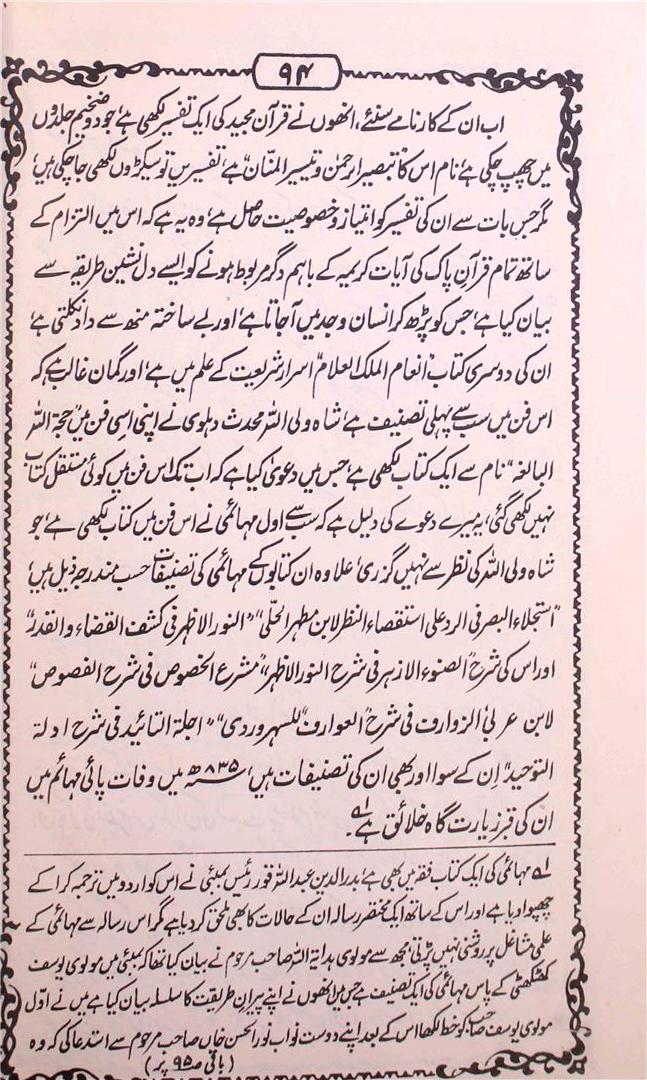 ۹۴
اب ان کے کارنامے سنئے، انھوں نے قرآن مجید کی ایک تفسیر لکھی ہے، جو دو ضخیم جلدوں
میں چھپ چکی ہے، نام اس کا "تبصیر الرحمٰن و تیسیر المنّان" ہے، تفسیریں تو سیکڑوں لکھی جا چکی ہیں،
مگر جس بات سے ان کی تفسیر کو امتیاز و خصوصیت حاصل ہے، وہ یہ ہے کہ اس میں التزام کے
ساتھ تمام قرآنِ پاک کی آیات کریمہ کے باہم دگر مربوط ہونے کو ایسے دل نشین طریقہ سے
بیان کیا ہے، جس کو پڑھ کر انسان وجد میں آ جاتا ہے، اور بے ساختہ منھ سے داد نکلتی ہے،
ان کی دوسری کتاب "انعام الملک العلام" اسرار شریعت کے علم میں ہے، اور گمان غالب ہے کہ
اس فن میں سب سے پہلی تصنیف ہے، شاہ ولی اللہ محدث دہلوی نے اپنی اسی فن میں "حجۃ اللہ
البالغہ" نام سے ایک کتاب لکھی ہے، جس میں دعویٰ کیا ہے کہ اب تک اس فن میں کوئی مستقل کتاب
نہیں لکھی گئی، یہ میرے دعوے کی دلیل ہے کہ سب سے اول مہائمی نے اس فن میں کتاب لکھی ہے، جو
شاہ ولی اللہ کی نظر سے نہیں گزری، علاوہ ان کتابوں کے مہائمی کی تصنیفات حسب مندرجہ ذیل ہیں،
"استجلاء البصر فی الرد علی استقصاء النظر لابن مطہر الحلّی" "النور الاظہر فی کشف القضاء والقدر"
اور اس کی شرح "الضوء الازہر فی شرح النور الاظہر" "مشرع الخصوص فی شرح الفصوص"
لابن عربی "الزوارف فی شرح العوارف" للسہروردی" "اجلۃ التائید فی شرح ادلۃ
التوحید" اِن کے سوا اور بھی ان کی تصنیفات ہیں، ۸۳۵ھ میں وفات پائی مہائم میں
ان کی قبر زیارت گاہ خلائق ہے ؂۱۔
؂۱ مہائمی کی ایک کتاب فقہ میں بھی ہے، بدر الدین عبد اللہ قور رئیس بمبئی نے اس کو اردو میں ترجمہ کرا کے
چھپوا دیا ہے اور اس کے ساتھ ایک مختصر رسالہ ان کے حالات کا بھی ملحق کر دیا ہے مگر اس رسالہ سے مہائمی کے
علمی مشاغل پر روشنی نہیں پڑتی، مجھ سے مولوی ہدایۃ اللہ صاحب مرحوم نے بیان کیا تھا کہ بمبئی میں مولوی یوسف
کھٹکھٹی کے پاس مہائمی کی ایک تصنیف ہے جس میں انھوں نے اپنے پیرانِ طریقت کا سلسلہ بیان کیا ہے میں نے اوّل
مولوی یوسف صاحب کو خط لکھا اس کے بعد اپنے دوست نواب نور الحسن خاں صاحب مرحوم سے استدعا کی کہ وہ
(باقی ص ۹۵ پر)